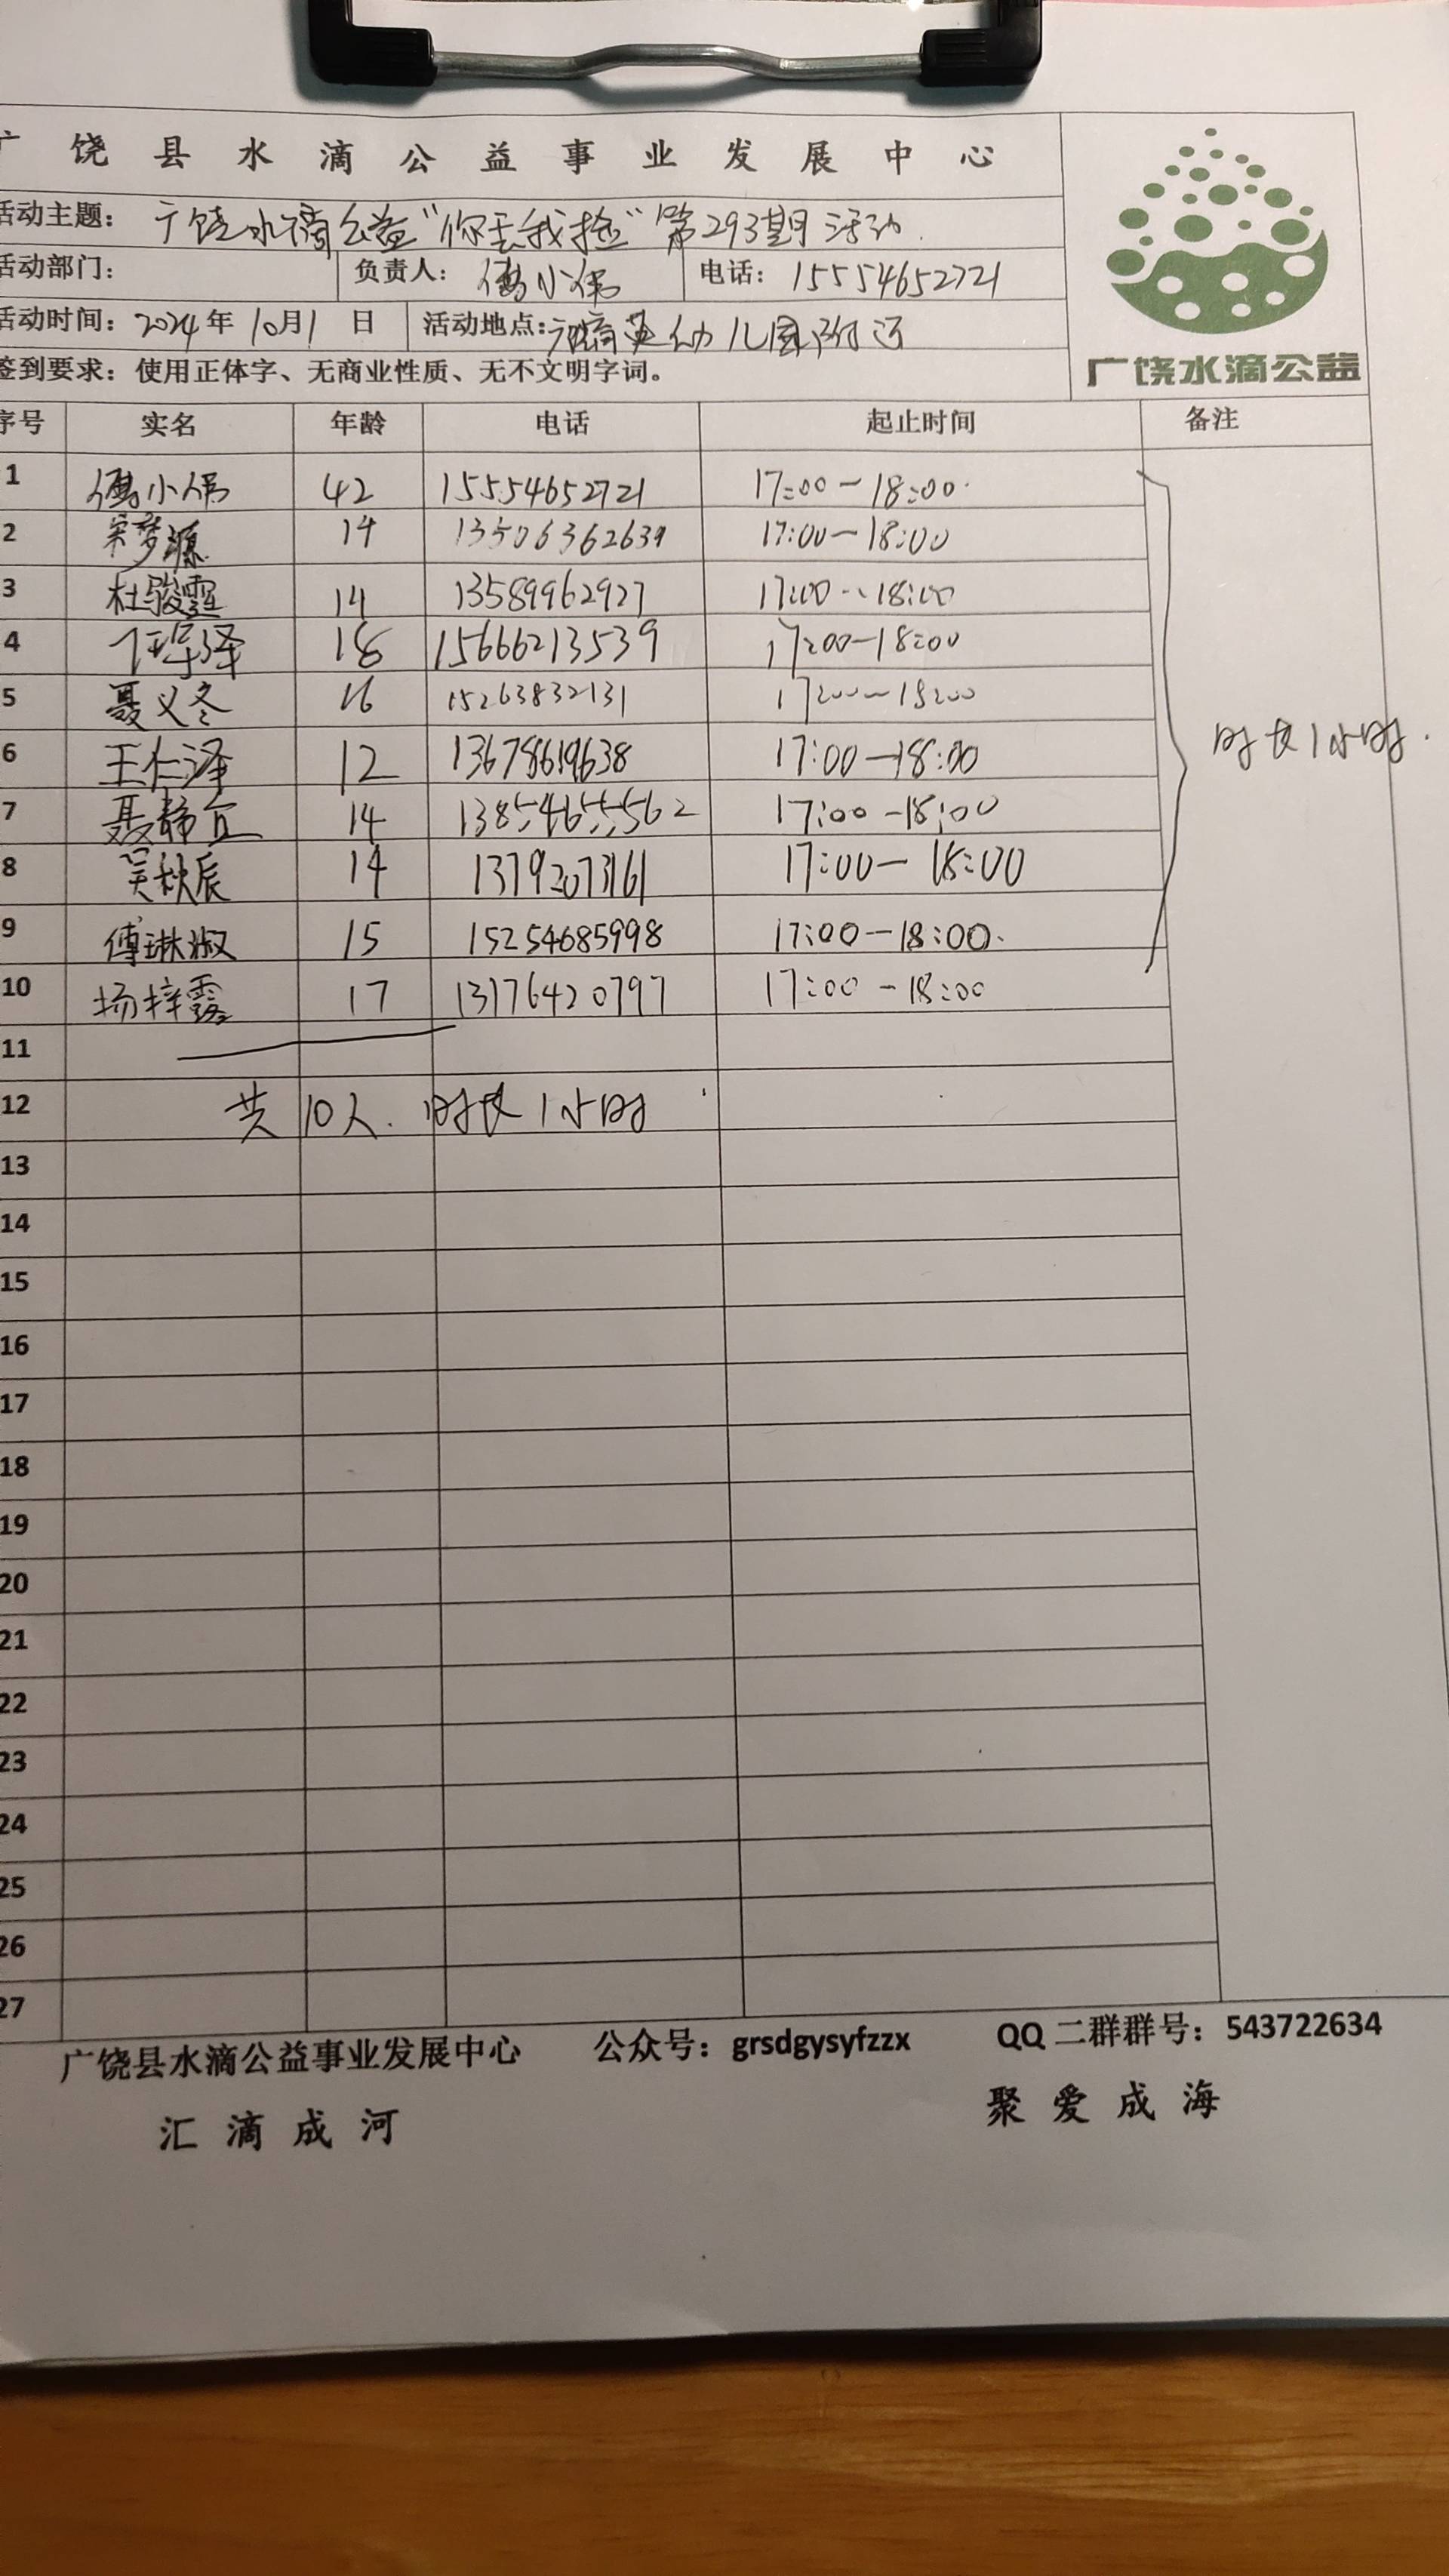 广饶县水滴公益事业发展中心
活动主题： 广饶水滴公益“你丢我捡”第293期活动.
活动部门： 负责人： 傅小伟 电话： 15554652721
活动时间：2024年10月1日 活动地点： 育英幼儿园附近
签到要求：使用正体字、无商业性质、无不文明字词。
广饶水滴公益
序号 实名 年龄 电话 起止时间 备注
1 傅小伟 42 15554652721 17:00-18:00
2 宋梦源 14 13506362639 17:00-18:00
3 杜骏霆 14 13589962927 17:00-18:00
4 18 15666213539 17:00-18:00
5 聂义冬 16 15263832131 17:00-18:00
时长1小时.
6 王仁泽 12 13678619638 17:00-18:00
7 聂静宜 14 13854655562 17:00-18:00
8 吴秋辰 14 13792073161 17:00-18:00
9 傅琳淑 15 15254685998 17:00-18:00.
10 杨梓露 17 13176420797 17:00-18:00
11
12 共10人. 时长1小时
13
14
15
16
17
18
19
20
21
22
23
24
25
26
27
广饶县水滴公益事业发展中心 公众号：grsdgysyfzzx QQ二群群号：543722634
汇滴成河 聚爱成海